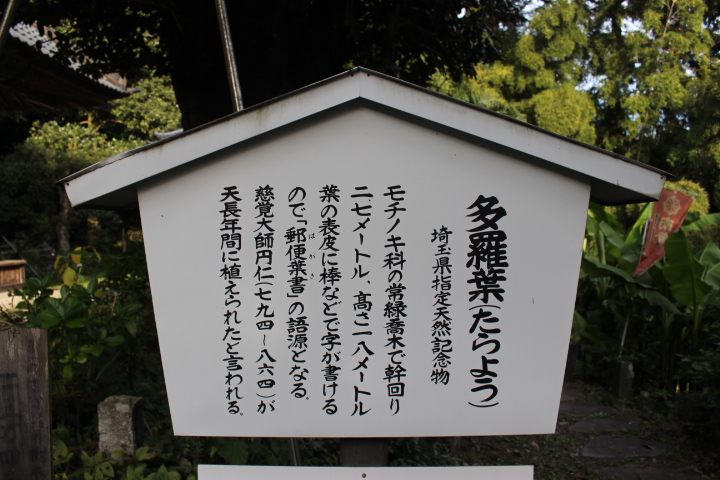 多羅葉(たらよう)
埼玉県指定天然記念物
モチノキ科の常緑喬木で幹回り
二、七メートル、高さ一八メートル
葉の表皮に棒などで字が書ける
ので「郵便葉書」の語源となる。
はがき
慈覚大師円仁(七九四～八六四)が
天長年間に植えられたと言われる。